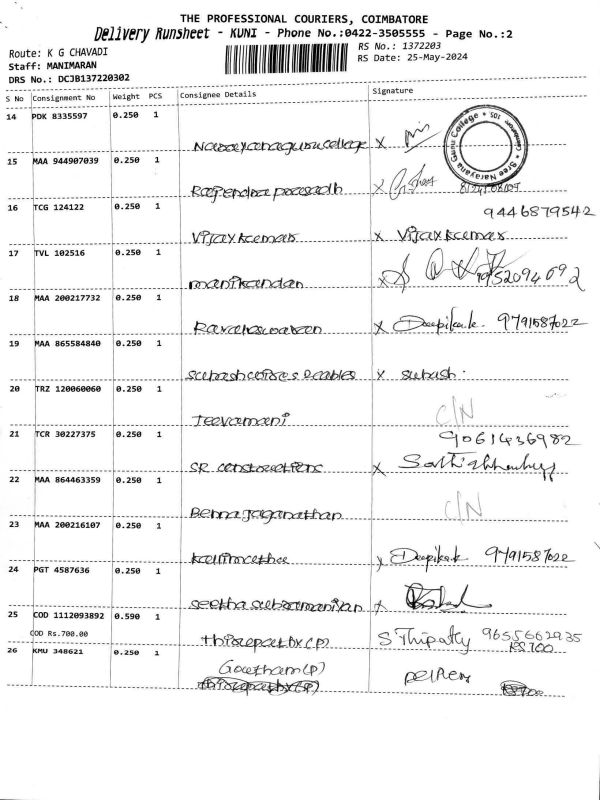 THE PROFESSIONAL COURIERS, COIMBATORE
Delivery Runsheet - KUNI - Phone No.:0422-3505555 - Page No.:2
Route: K G CHAVADI
RS No.: 1372203
Staff: MANIMARAN
RS Date: 25-May-2024
DRS No.: DCJB137220302
S No Consignment No Weight PCS Consignee Details Signature
14 PDK 8335597 0.250 1
Narayanaguru college X
15 MAA 944907039 0.250 1
Rajendra prasadh X
16 TCG 124122 0.250 1
9446879542
Vijaykumar X Vijaykumar
17 TVL 102516 0.250 1
manikandan X
18 MAA 200217732 0.250 1
X Deepika.k. 9791587022
19 MAA 865584840 0.250 1
X subash.
20 TRZ 120060060 0.250 1
Jeevamani C/N
21 TCR 30227375 0.250 1
9061436982
SR constructions X
22 MAA 864463359 0.250 1
Jaganathan C/N
23 MAA 200216107 0.250 1
Deepika.k 9791587022
24 PGT 4587636 0.250 1
seetha subramaniyan X
25 COD 1112093892 0.590 1
COD Rs.700.00
thirupathy (P) S Thipathy 9655662935
RS 700
26 KMU 348621 0.250 1
Gowtham (P)
thirupathy (P)